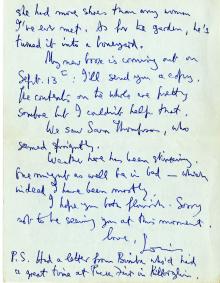 she had more shoes than any woman
I've ever met. As for the garden, he's
turned it into a boneyard.
My new book is coming out on
Sept. 13. I'll send you a copy.
The contents on the whole are pretty
sombre but I couldn't help that.
We saw Sara Thompson, who
seemed sprightly.
Weather here has been stinking.
One might as well be in bed — which
indeed I have been mostly.
I hope you both flourish. Sorry
not to be seeing you at this moment.
love,
P.S. Had a letter from who'd had
a great time at Puck Fair in Killorglin.